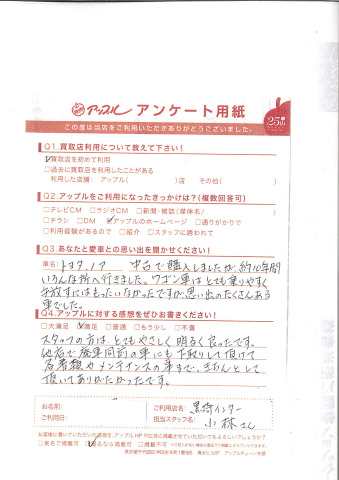 アップル アンケート用紙
25th
この度は当店をご利用いただきありがとうございました。
Q1.買取店利用について教えて下さい!
☑買取店を初めて利用
□過去に買取店を利用したことがある
利用した店舗: アップル( )店 その他( )
Q2.アップルをご利用になったきっかけは?(複数回答可)
□テレビCM □ラジオCM □新聞・雑誌(媒体名/ )
□チラシ □DM ☑アップルのホームページ □通りがかりで
□利用経験があるので □紹介 □スタッフに誘われて
Q3.あなたと愛車との思い出を聞かせてください!
車名: トヨタ ノア 中古で購入しましたが、約10年間
いろんな所へ行きました。ワゴン車はとても乗りやすく
手放すにはもったいなかったですが、思い出のたくさんある
車でした。
Q4.アップルに対する感想をぜひお書きください!
□大満足 ☑満足 □普通 □もう少し □不満
スタッフの方は、とてもやさしく 明るく良ったです。
他店で廃車同前の車にも下取りして頂けて
名義変やメンテナンスの事まで、きちんとして
頂いてありがたかったです。
お名前:
ご利用日:
ご利用店名: 黒埼インター
担当スタッフ名: 小林さん
お客様に書いていただいた感想を、アップルHPや広告に掲載させていただいてもよろしいでしょうか?
□実名で掲載可 ☑匿名なら掲載可 □掲載不可